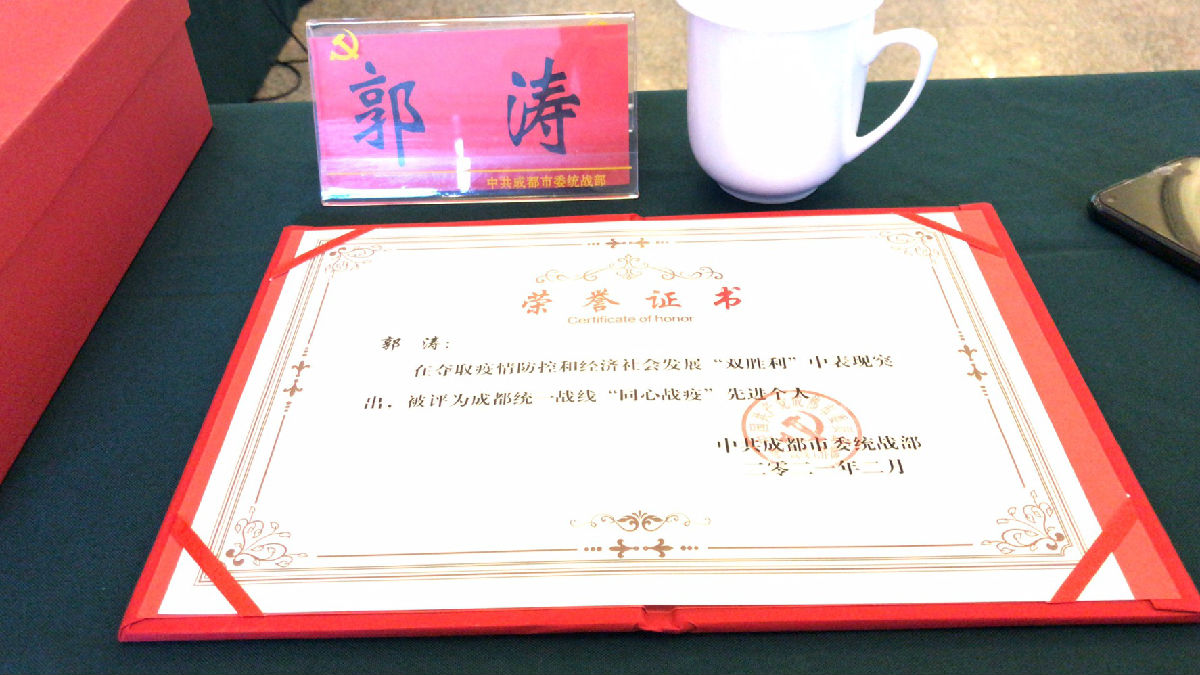 郭 涛
中共成都市委统战部
荣誉证书
Certificate of honor
郭 涛：
在夺取疫情防控和经济社会发展“双胜利”中表现突
出，被评为成都统一战线“同心战疫”先进个人
中共成都市委统战部
二零二一年二月